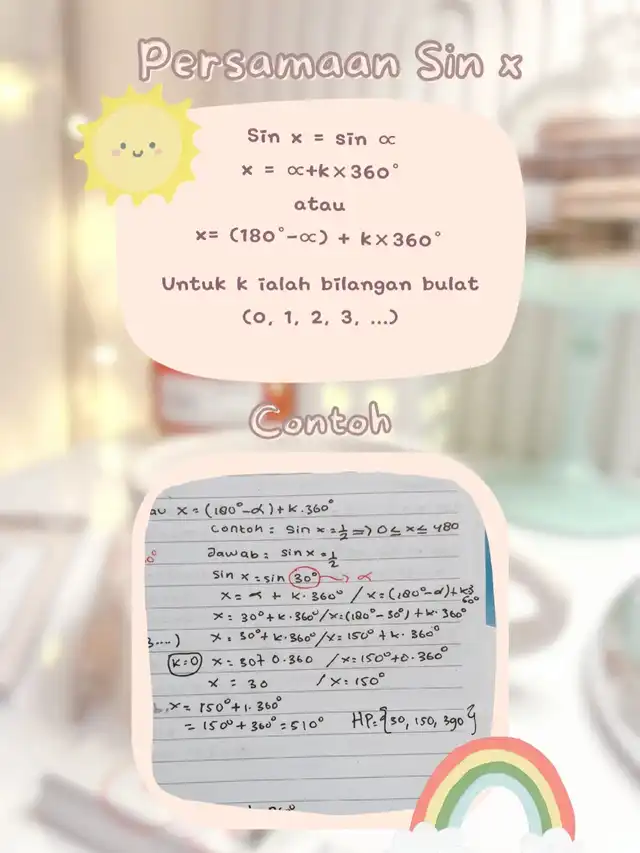 Persamaan Sin x
Sin x = sin ∝
x = ∝+k×360°
atau
x= (180°-∝) + k×360°
Untuk k ialah bilangan bulat
(0, 1, 2, 3, ...)
Contoh
au x = (180°-α)+k.360°
Contoh : Sin x = 1/2 => 0 ≤ x ≤ 480
Jawab : sin x = 1/2
sin x = sin 30° → α
x = α + k.360° / x = (180°-α)+k3
60°
x = 30°+k.360°/x=(180°-30°)+k.360°
3....) x = 30°+k.360°/x=150°+k.360°
k=0 x = 30+0.360 /x=150°+0.360°
x = 30 /x=150°
x = 150°+1.360°
= 150°+360°=510° HP={30, 150, 390}